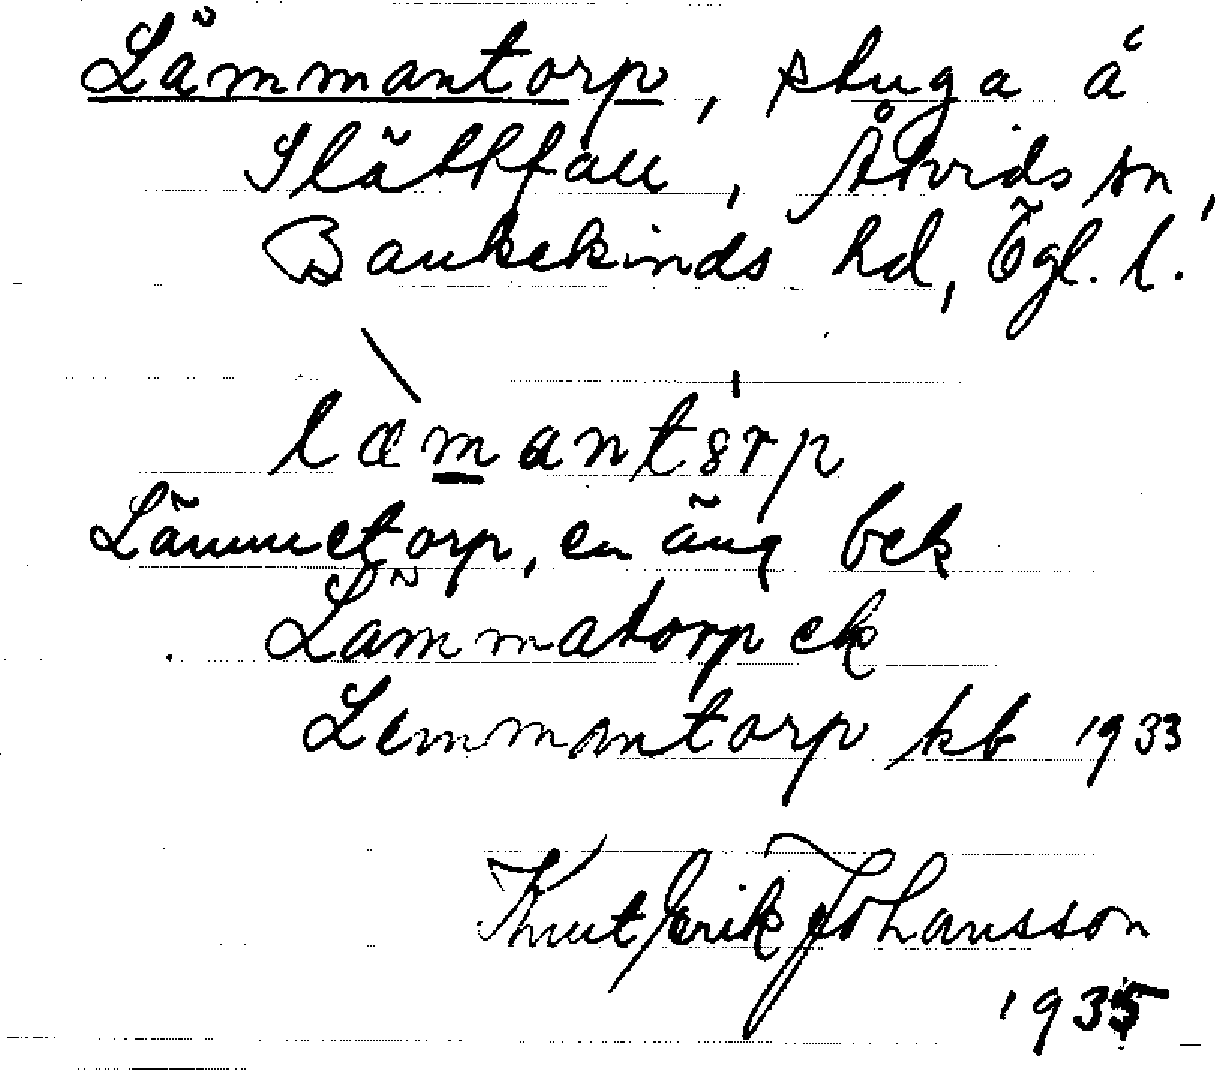 Lämmantorp, stuga å
Slätkfall, Åtvids sn,
Bankekinds hd, Ögl. l.
læmantorp
Lämmetorp, en äng bek
Lämmatorp ek
Lemmantorp kb 1933
Knut Erik Johansson
1935